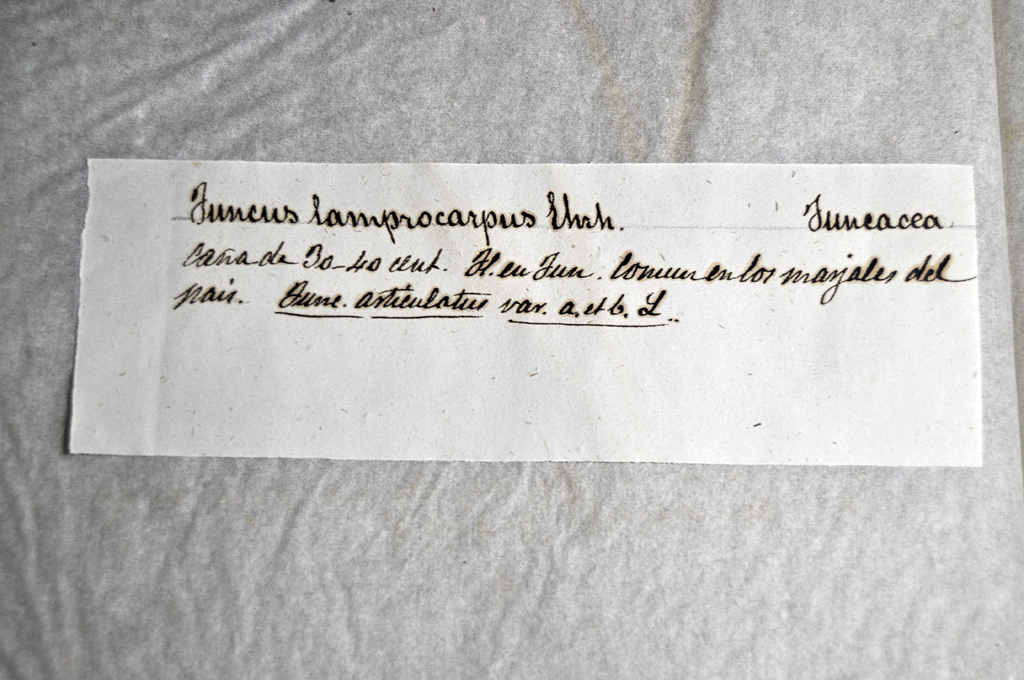 Juncus lamprocarpus Ehrh. Juncacea
Caña de 30-40 cent. Fl. en Jun. Comun en los marjales del
pais. Junc. articulatus var. a. et b. L..